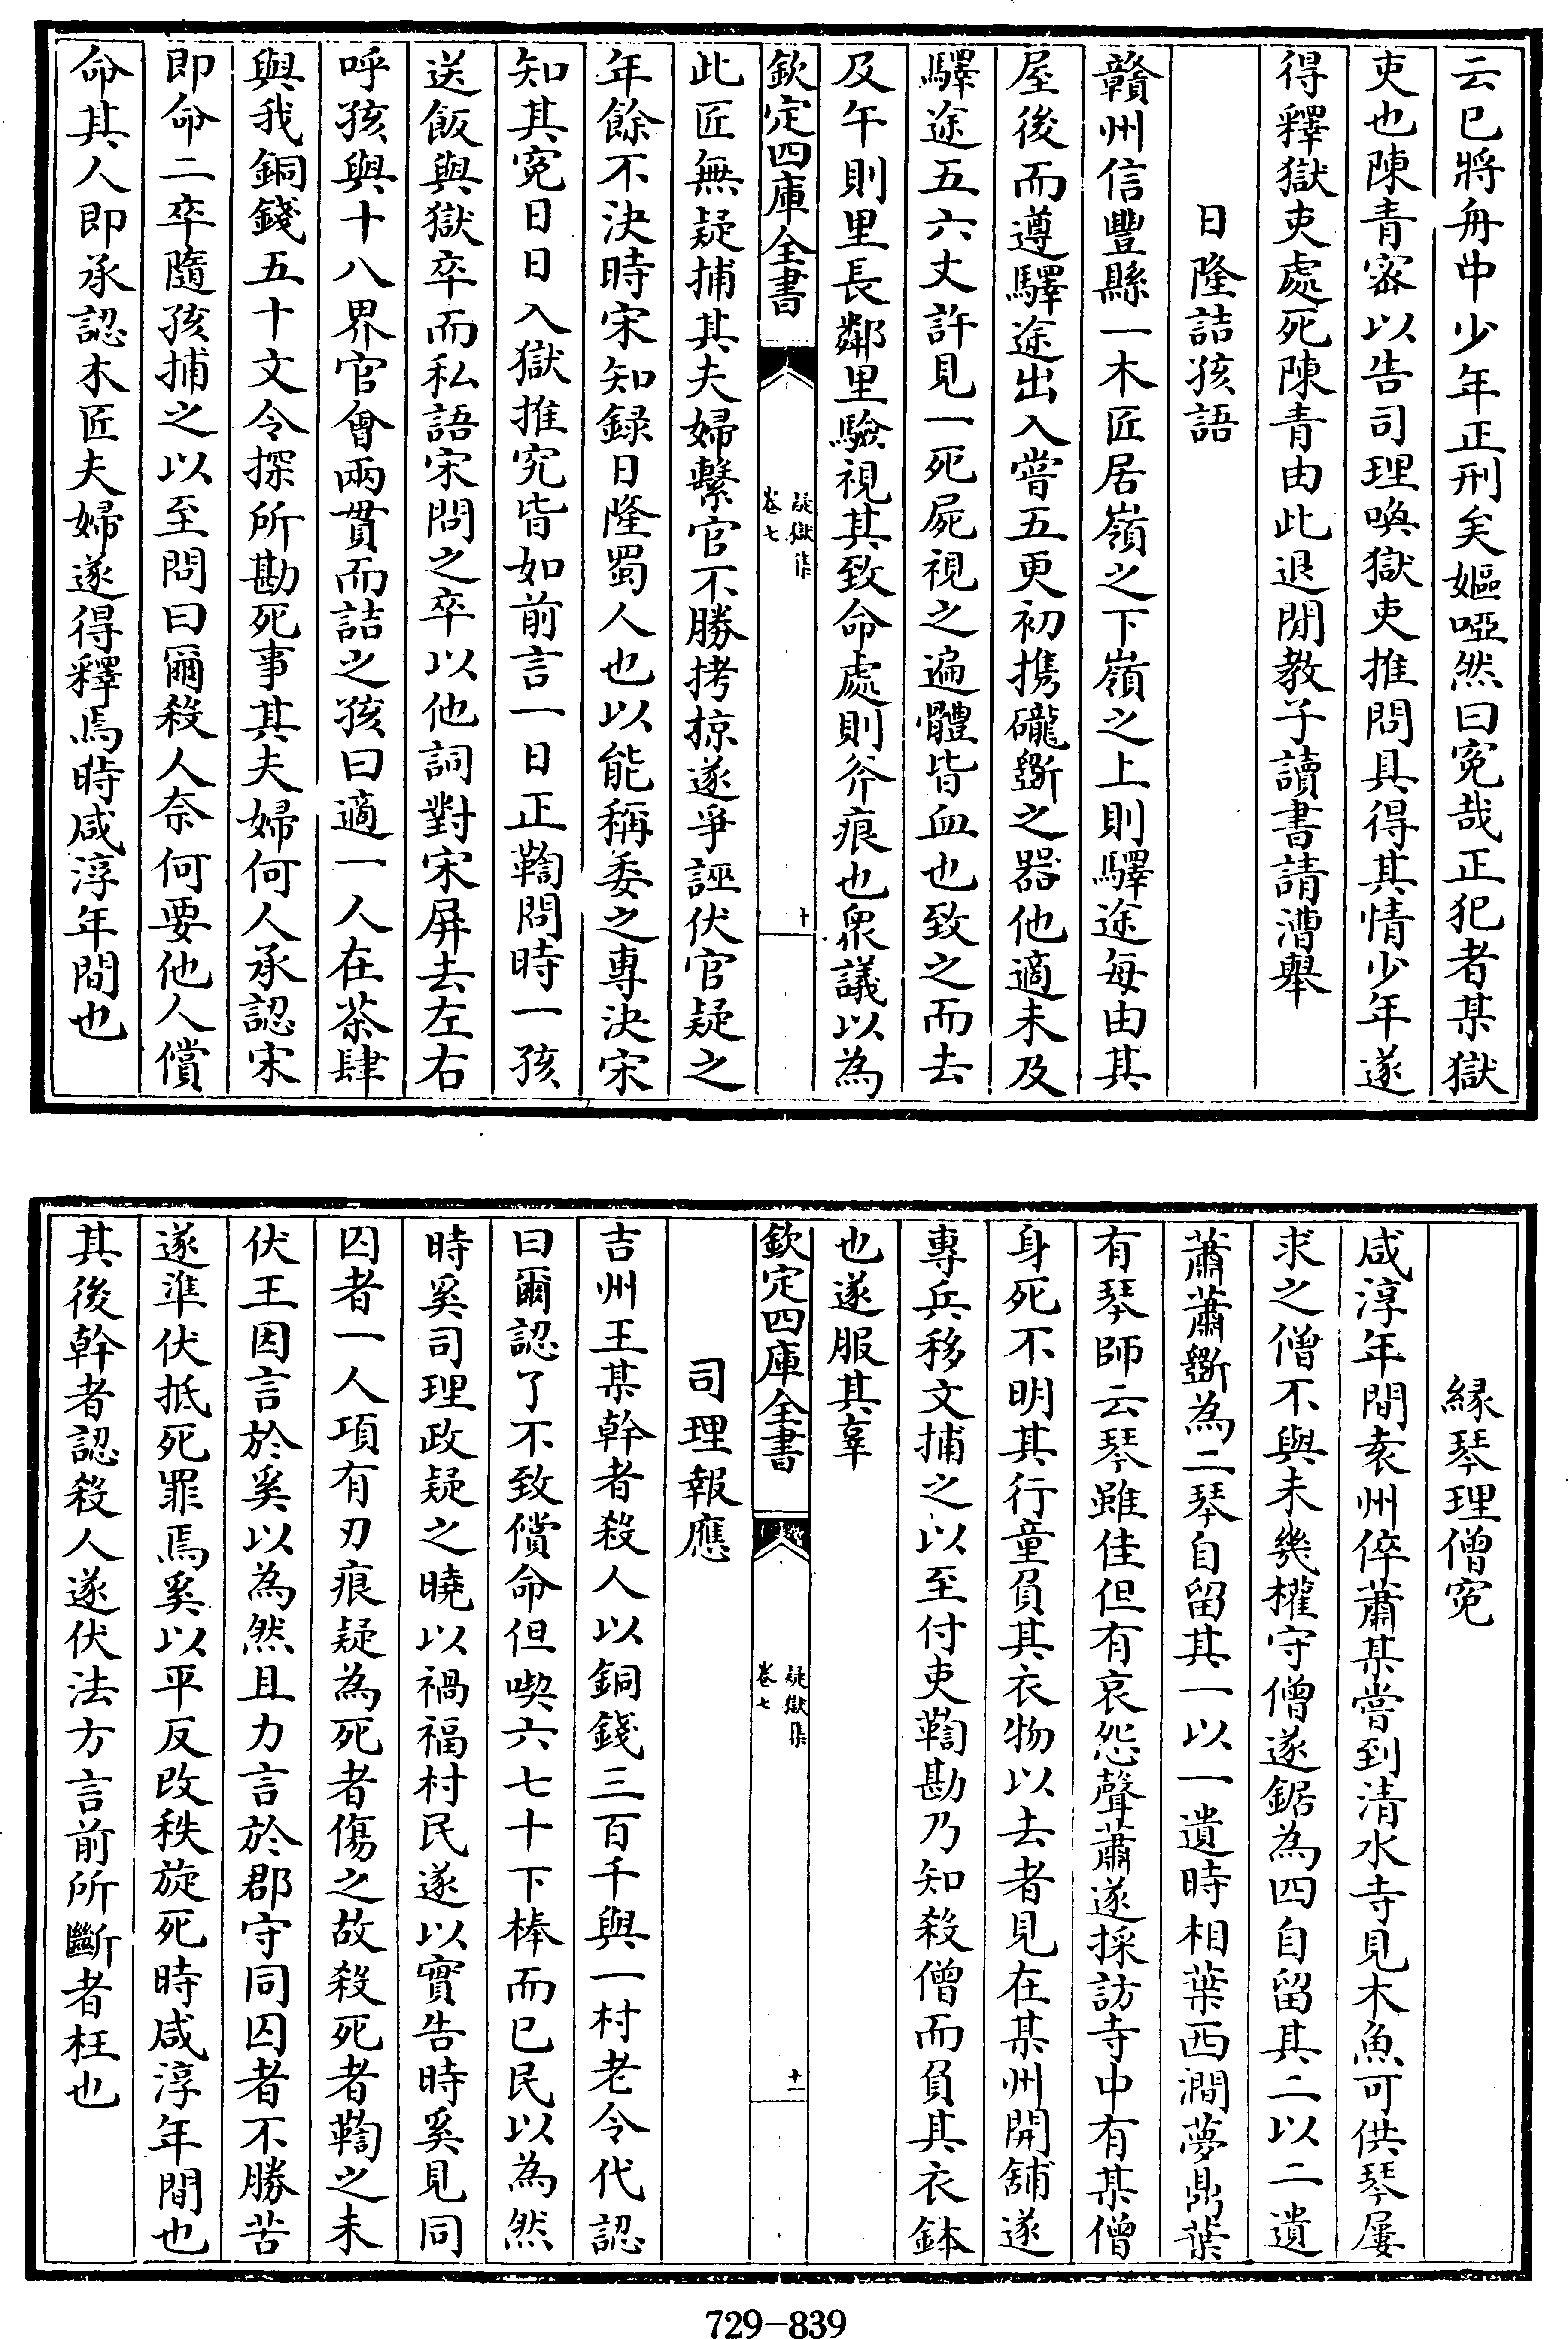 云已將舟中少年正刑矣嫗啞然曰寃哉正犯者某獄
吏也陳青密以告司理喚獄吏推問具得其情少年遂
得釋獄吏處死陳青由此退閒教子讀書請漕舉
日隆詰孩語
贛州信豐縣一木匠居嶺之下嶺之上則驛途每由其
屋後而遵驛途出入嘗五更初携礲斵之器他適未及
驛途五六丈許見一死屍視之遍體皆血也致之而去
及午則里長鄰里驗視其致命處則斧痕也衆議以為
欽定四庫全書
疑獄集
卷七
十
此匠無疑捕其夫婦繫官不勝拷掠遂爭誣伏官疑之
年餘不決時宋知録日隆蜀人也以能稱委之專決宋
知其寃日日入獄推究皆如前言一日正鞫問時一孩
送飯與獄卒而私語宋問之卒以他詞對宋屏去左右
呼孩與十八界官會兩貫而詰之孩曰適一人在茶肆
與我銅錢五十文令探所勘死事其夫婦何人承認宋
即命二卒隨孩捕之以至問曰爾殺人奈何要他人償
命其人即承認木匠夫婦遂得釋焉時咸淳年間也
緣琴理僧寃
咸淳年間袁州倅蕭某嘗到清水寺見木魚可供琴屢
求之僧不與未幾權守僧遂鋸為四自留其二以二遺
蕭蕭斵為二琴自留其一以一遺時相葉西澗夢鼎葉
有琴師云琴雖佳但有哀怨聲蕭遂採訪寺中有某僧
身死不明其行童負其衣物以去者見在某州開舖遂
專兵移文捕之以至付吏鞫勘乃知殺僧而負其衣鉢
也遂服其辜
欽定四庫全書
疑獄集
卷七
十一
司理報應
吉州王某幹者殺人以銅錢三百千與一村老令代認
曰爾認了不致償命但喫六七十下棒而已民以為然
時奚司理政疑之曉以禍福村民遂以實告時奚見同
囚者一人項有刃痕疑為死者傷之故殺死者鞫之未
伏王因言於奚以為然且力言於郡守同囚者不勝苦
遂準伏抵死罪焉奚以平反改秩旋死時咸淳年間也
其後幹者認殺人遂伏法方言前所斷者枉也
729-839